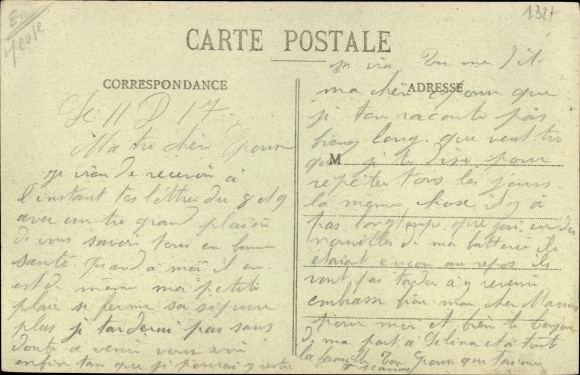 Meuse
132
CARTE POSTALE
CORRESPONDANCE
Le 11 D 17
Ma tre chère Epouse
je vien de recevoir à
l'instant tes lettres du 8 et 9
avec un tre grand plaisir
de vous savoir tous en bonne
santé quand à moi il en
est de meme ma petite
plaie se ferme sa
plus je tarderai pas sans
doute a venir vous voir
enfin tan que je pourai y
je Tu me dit
ADRESSE
ma chère Epouse que
je ten raconte pas
bien long que veut tu
M
que je te dise pour
répéter tous les jours
la meme chose il y a
pas longtemps que jai eu des
nouvelles de ma batterie ils
etaient encore au repos ils
vont pas tarder à y revenir
embrasse bien mon cher
pour moi et bien le bonjour
de ma part a Délina et à toute
la famille Ton Epoux qui t'aime